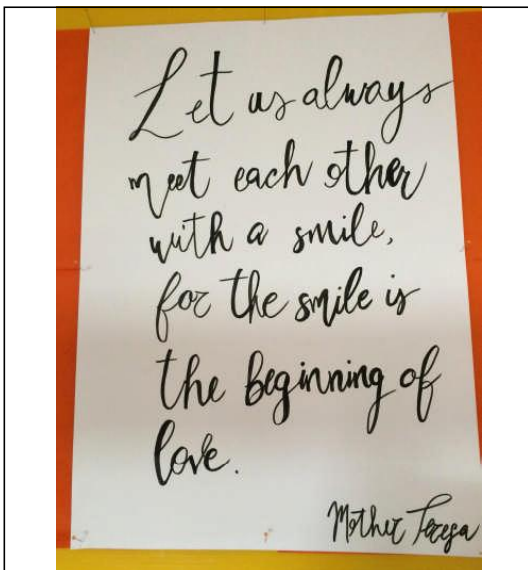 Let us always
meet each other
with a smile,
for the smile is
the beginning of
love.
Mother Teresa